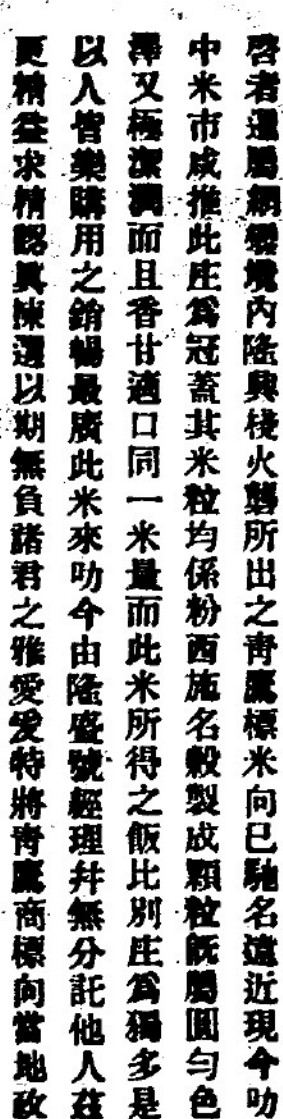 啓者暹屬網磅境內隆興棧火礱所出之青鷹標米向已馳名遠近現今叻
中米市咸推此庄爲冠蓋其米粒均係粉西施名穀製成顆粒既屬圓勻色
澤又極潔潤而且香甘適口同一米量而此米所得之飯比別庄爲獨多是
以人皆樂購用之銷暢最廣此米來叻今由隆盛號經理幷無分託他人茲
更精益求精認眞揀選以期無負諸君之雅愛爰特將青鷹商標向當地政